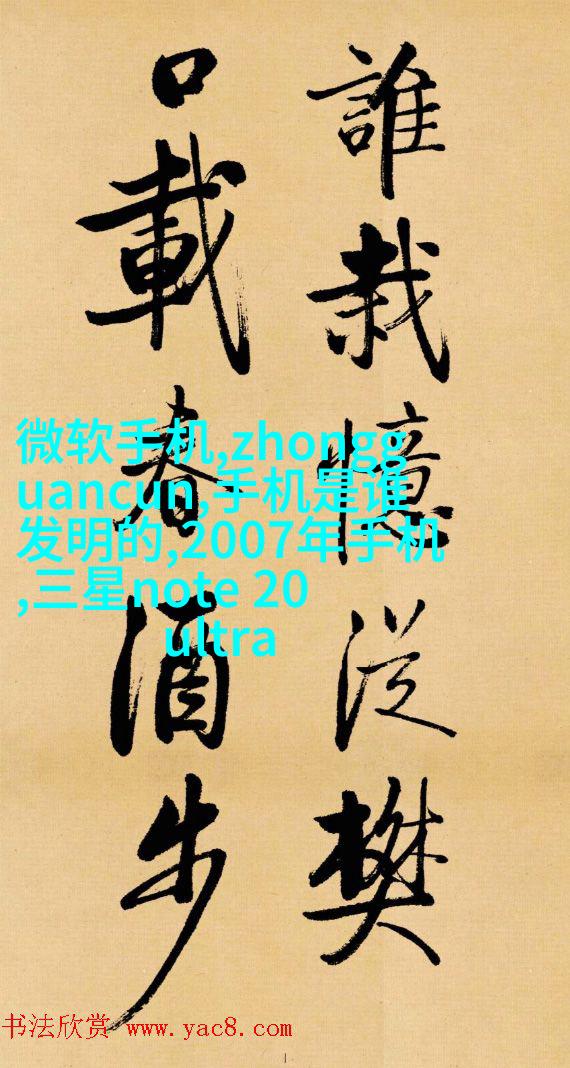 誰栽憶從樊
口載春酒步
微软手机,zhongg
uancun,手机是谁
发明的,2007年手机
,三星note 20
ultra
书法欣赏 www.yac8.com